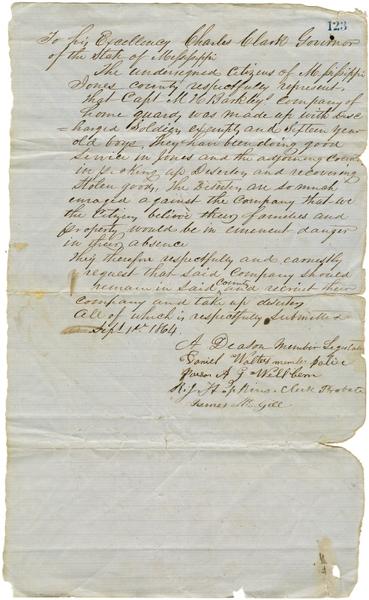 123
To his Excellency Charles Clark Govornor
of the State of Mississippi
The undersigned Citizens of Mississippi
Jones county respectfully represent,
That Capt M H Barkleys Company of
home guard, was made up with Disc
=harged Soldiers, exempts, and sixteen year
old boys, they have been doing good
Service in Jones and the adjoining Counties
in picking up Deserters and recovering
Stolen goods, The Deserters are so much
enraged against the Company that we
the Citizens believe their families and
Property would be in eminent danger
in their absence
They therefore respectfully and earnestly
request that said Company should
remain in Said County and recruit their
company and take up deserters
All of which is respectfully submitted
Sept 1st 1864
A Deason Member Legislatu
Daniel Walters member Police
A G Wellborn
R J Hopkins Clerk Probate
James McGill